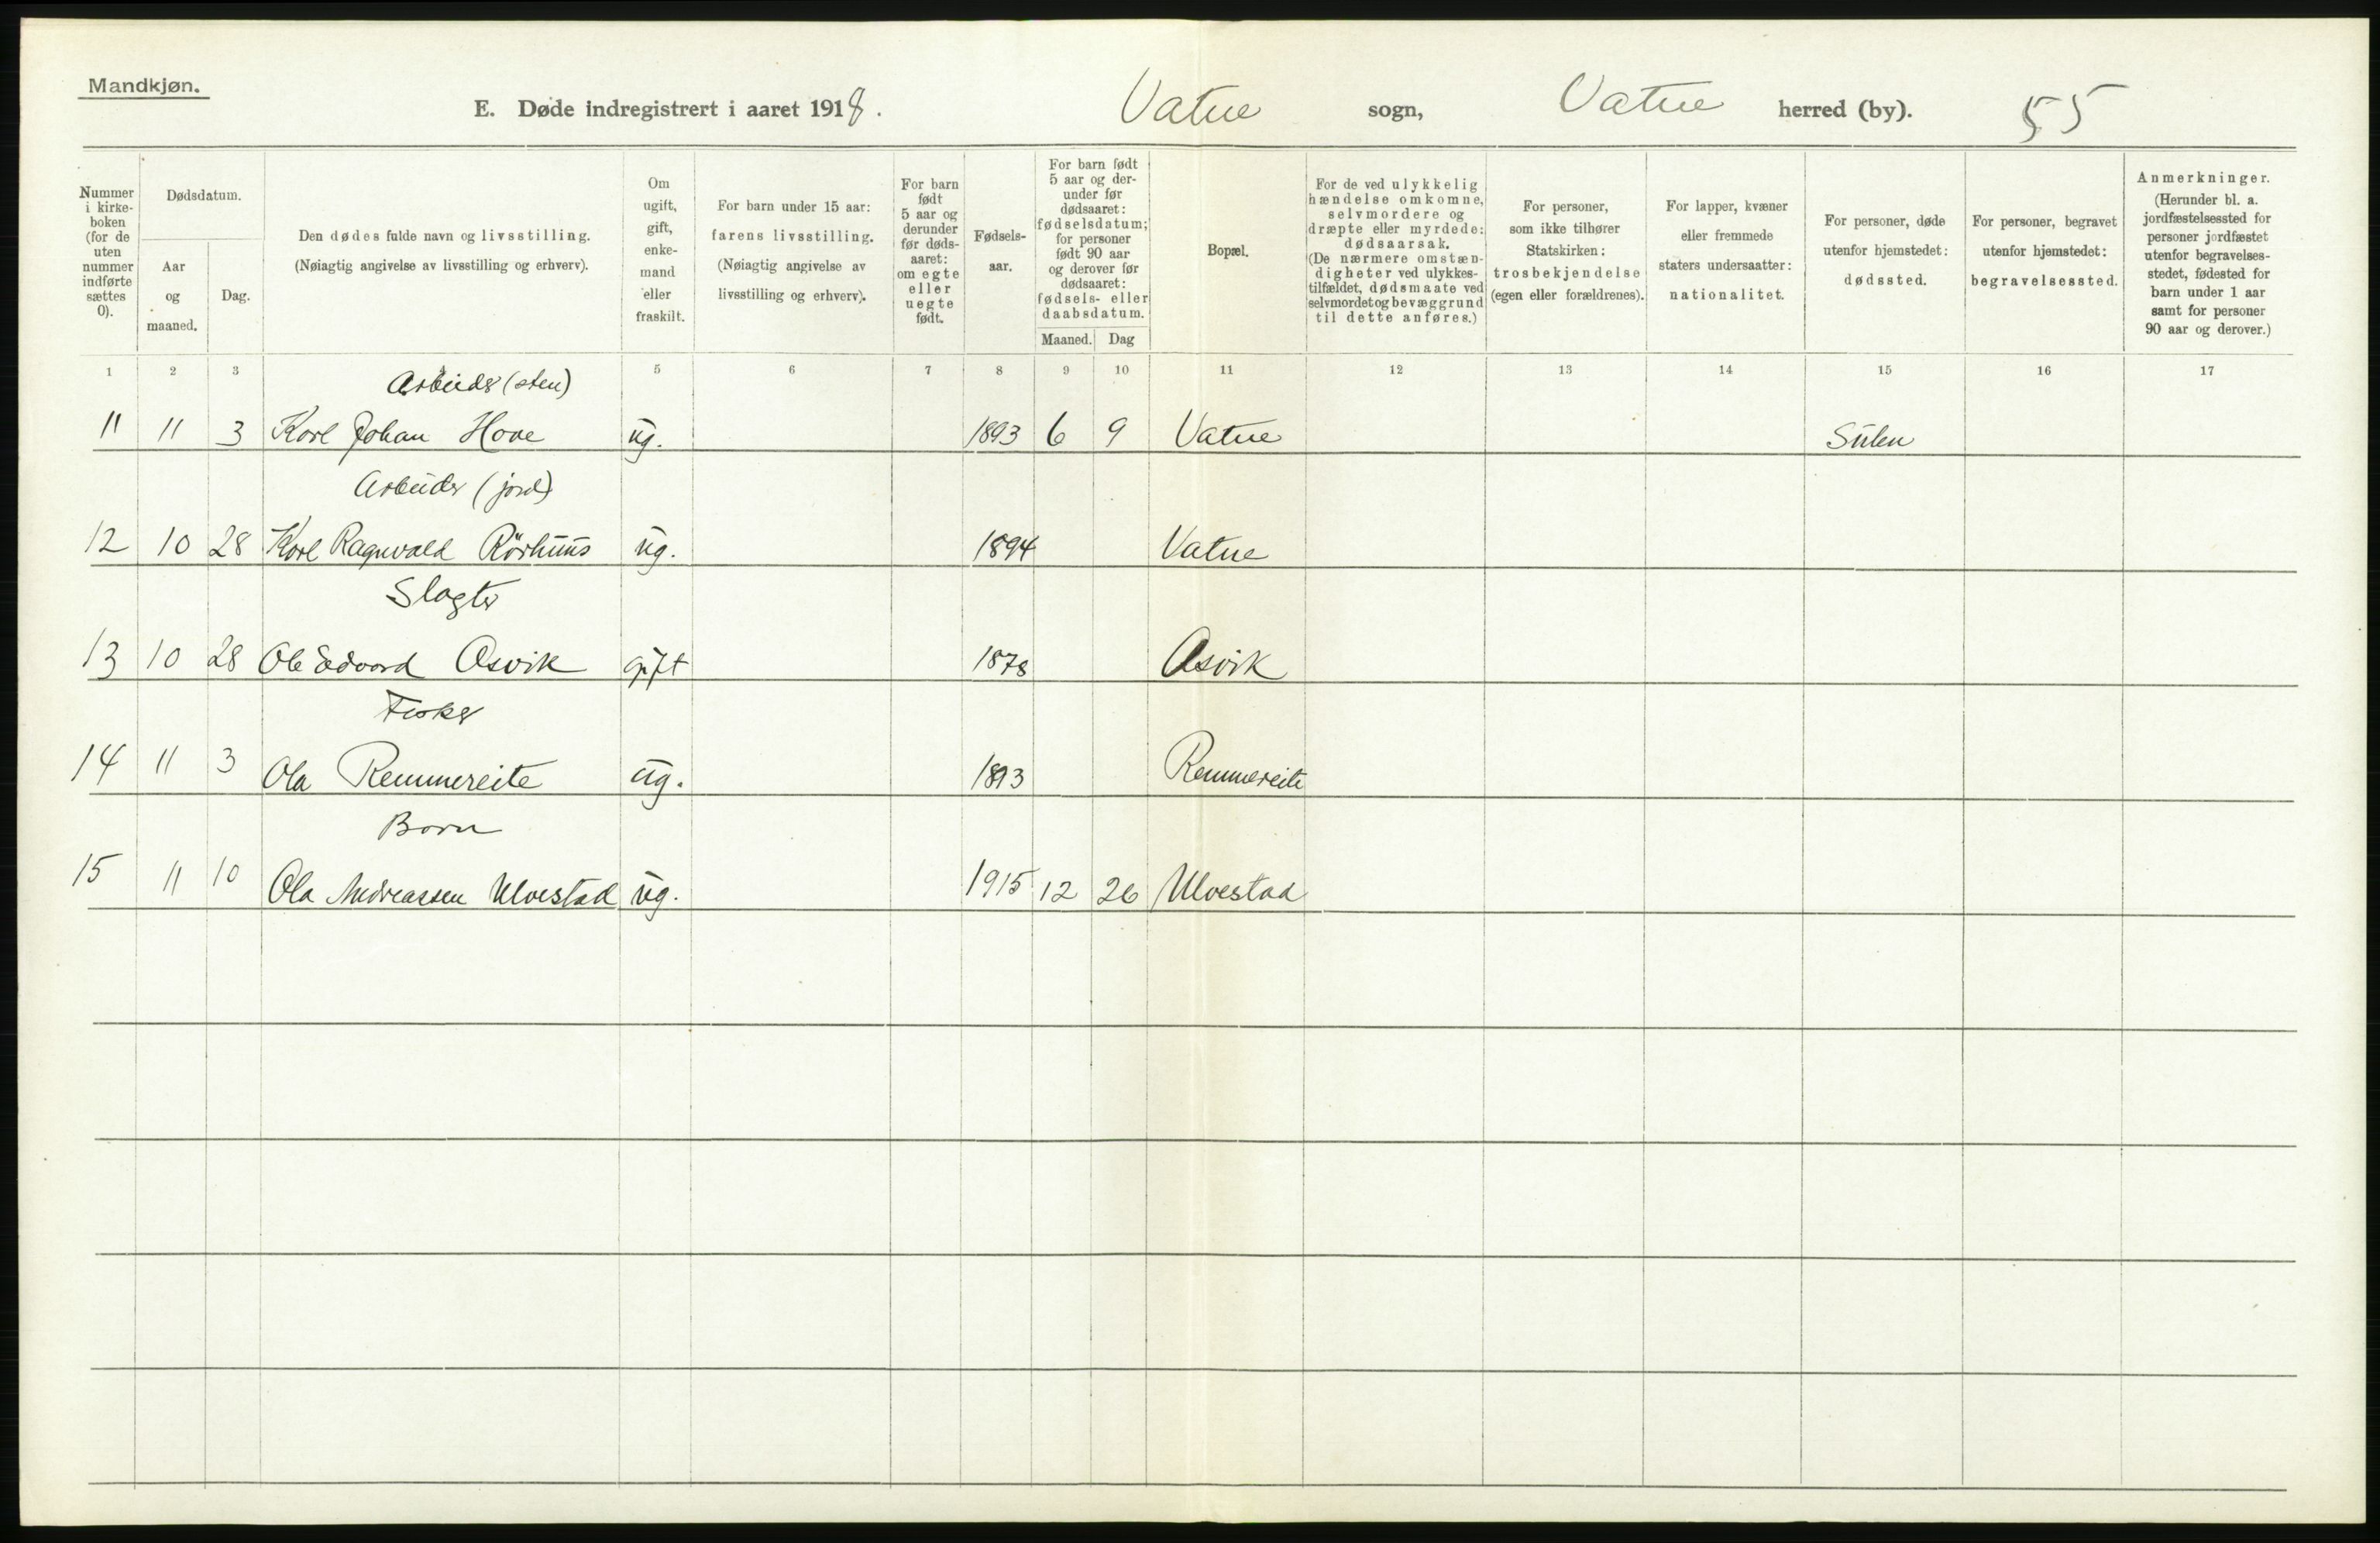 Mandkjøn.
E. Døde indregistrert i aaret 1918. Vatne sogn, Vatne herred (by). 55
Nummer i kirke-boken (for de uten nummer indførte sættes 0).
Dødsdatum.
Aar og maaned.
Dag.
Den dødes fulde navn og livsstilling.
(Nøiagtig angivelse av livsstilling og erhverv).
Om ugift, gift, enke-mand eller fraskilt.
For barn under 15 aar: farens livsstilling. (Nøiagtig angivelse av livsstilling og erhverv).
For barn født 5 aar og derunder før døds-aaret: om egte eller uegte født.
Fødsels-aar.
For barn født 5 aar og der-under før dødsaaret: fødselsdatum; for personer født 90 aar og derover før dødsaaret: fødsels- eller daabsdatum.
Maaned. Dag
Bopæl.
For de ved ulykkelig hændelse omkomne, selvmordere og dræpte eller myrdede: dødsaarsak. (De nærmere omstæn-digheter ved ulykkes-tilfældet, dødsmaate ved selvmordet og bevæggrund til dette anføres.)
For personer, som ikke tilhører Statskirken: trosbekjendelse (egen eller forældrenes).
For lapper, kvæner eller fremmede staters undersaatter: nationalitet.
For personer, døde utenfor hjemstedet: dødssted.
For personer, begravet utenfor hjemstedet: begravelsessted.
Anmerkninger. (Herunder bl. a. jordfæstelsessted for personer jordfæstet utenfor begravelses-stedet, fødested for barn under 1 aar samt for personer 90 aar og derover.)
1 2 3 5 6 7 8 9 10 11 12 13 14 15 16 17
Arbeider (sten)
11 11 3 Karl Johan Hove ug. 1893 6 9 Vatne Sulen
Arbeider (jord)
12 10 28 Karl Ragnvald Rörhuus ug. 1894 Vatne
Slagter
13 10 28 Ole Edvard Asvik gift 1878 Asvik
Fisker
14 11 3 Ola Remmereite ug. 1893 Remmereite
Barn
15 11 10 Ola Andreassen Ulvestad ug. 1915 12 26 Ulvestad